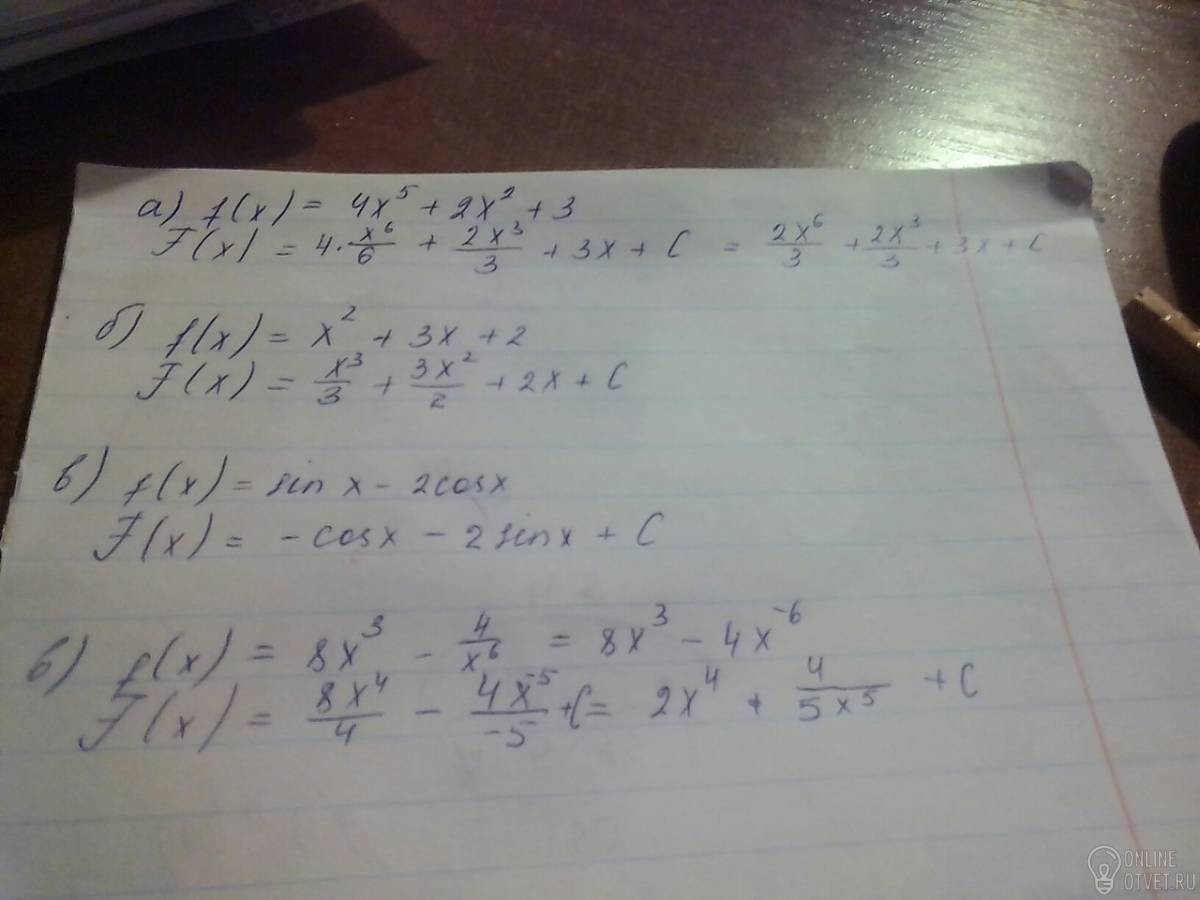 а) f(x) = 4x⁵ + 2x² + 3
F(x) = 4·x⁶/6 + 2x³/3 + 3x + C = 2x⁶/3 + 2x³/3 + 3x + C
б) f(x) = x² + 3x + 2
F(x) = x³/3 + 3x²/2 + 2x + C
в) f(x) = sin x - 2cosx
F(x) = -cosx - 2sinx + C
в) f(x) = 8x³ - 4/x⁶ = 8x³ - 4x⁻⁶
F(x) = 8x⁴/4 - 4x⁻⁵/-5 + C = 2x⁴ + 4/5x⁵ + C
ONLINE
OTVET.RU